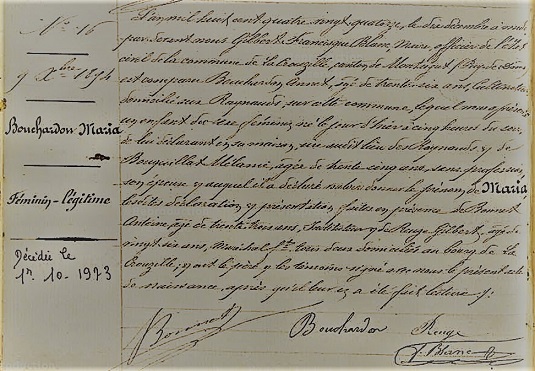 No 16
9 Xbre 1894
Bouchardon Maria
Féminin - légitime
Décédée le
1er. 10. 1973
L'an mil huit cent quatre vingt quatorze, le dix décembre à
par devant nous Gilbert Francisque Blanc, Maire, officier de l'état
civil de la commune de la Crouzille, canton de Montaigut, Puy de Dôme
est comparu Bouchardon Annet, âgé de trente six ans, cultivateur
domicilié aux Raynauds, sur cette commune, lequel nous a présenté
un enfant du sexe féminin, né le jour d'hier à cinq heures du soir
de lui déclarant en sa maison, au dit lieu des Raynauds, et de
Bouquillat Mélanie, âgée de trente cinq ans, sans profession,
son épouse et auquel il a déclaré vouloir donner le prénom de Maria
Lesdites déclaration et présentation faites en présence de Bonnet
Antoine, âgé de trente trois ans, Instituteur et de Rouge Gilbert, âgé de
vingt six ans, Maréchal ft tous deux domiciliés au bourg de La
Crouzille; et ont le père et les témoins signé avec nous le présent acte
de naissance, après qu'il leur en a été fait lecture
Bonnet
Bouchardon
Rouge
Blanc